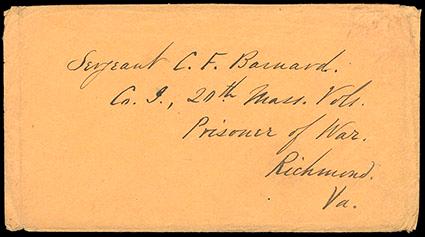 Sergeant C. F. Barnard.
Co. I., 20th Mass. Vols.
Prisoner of War.
Richmond.
Va.